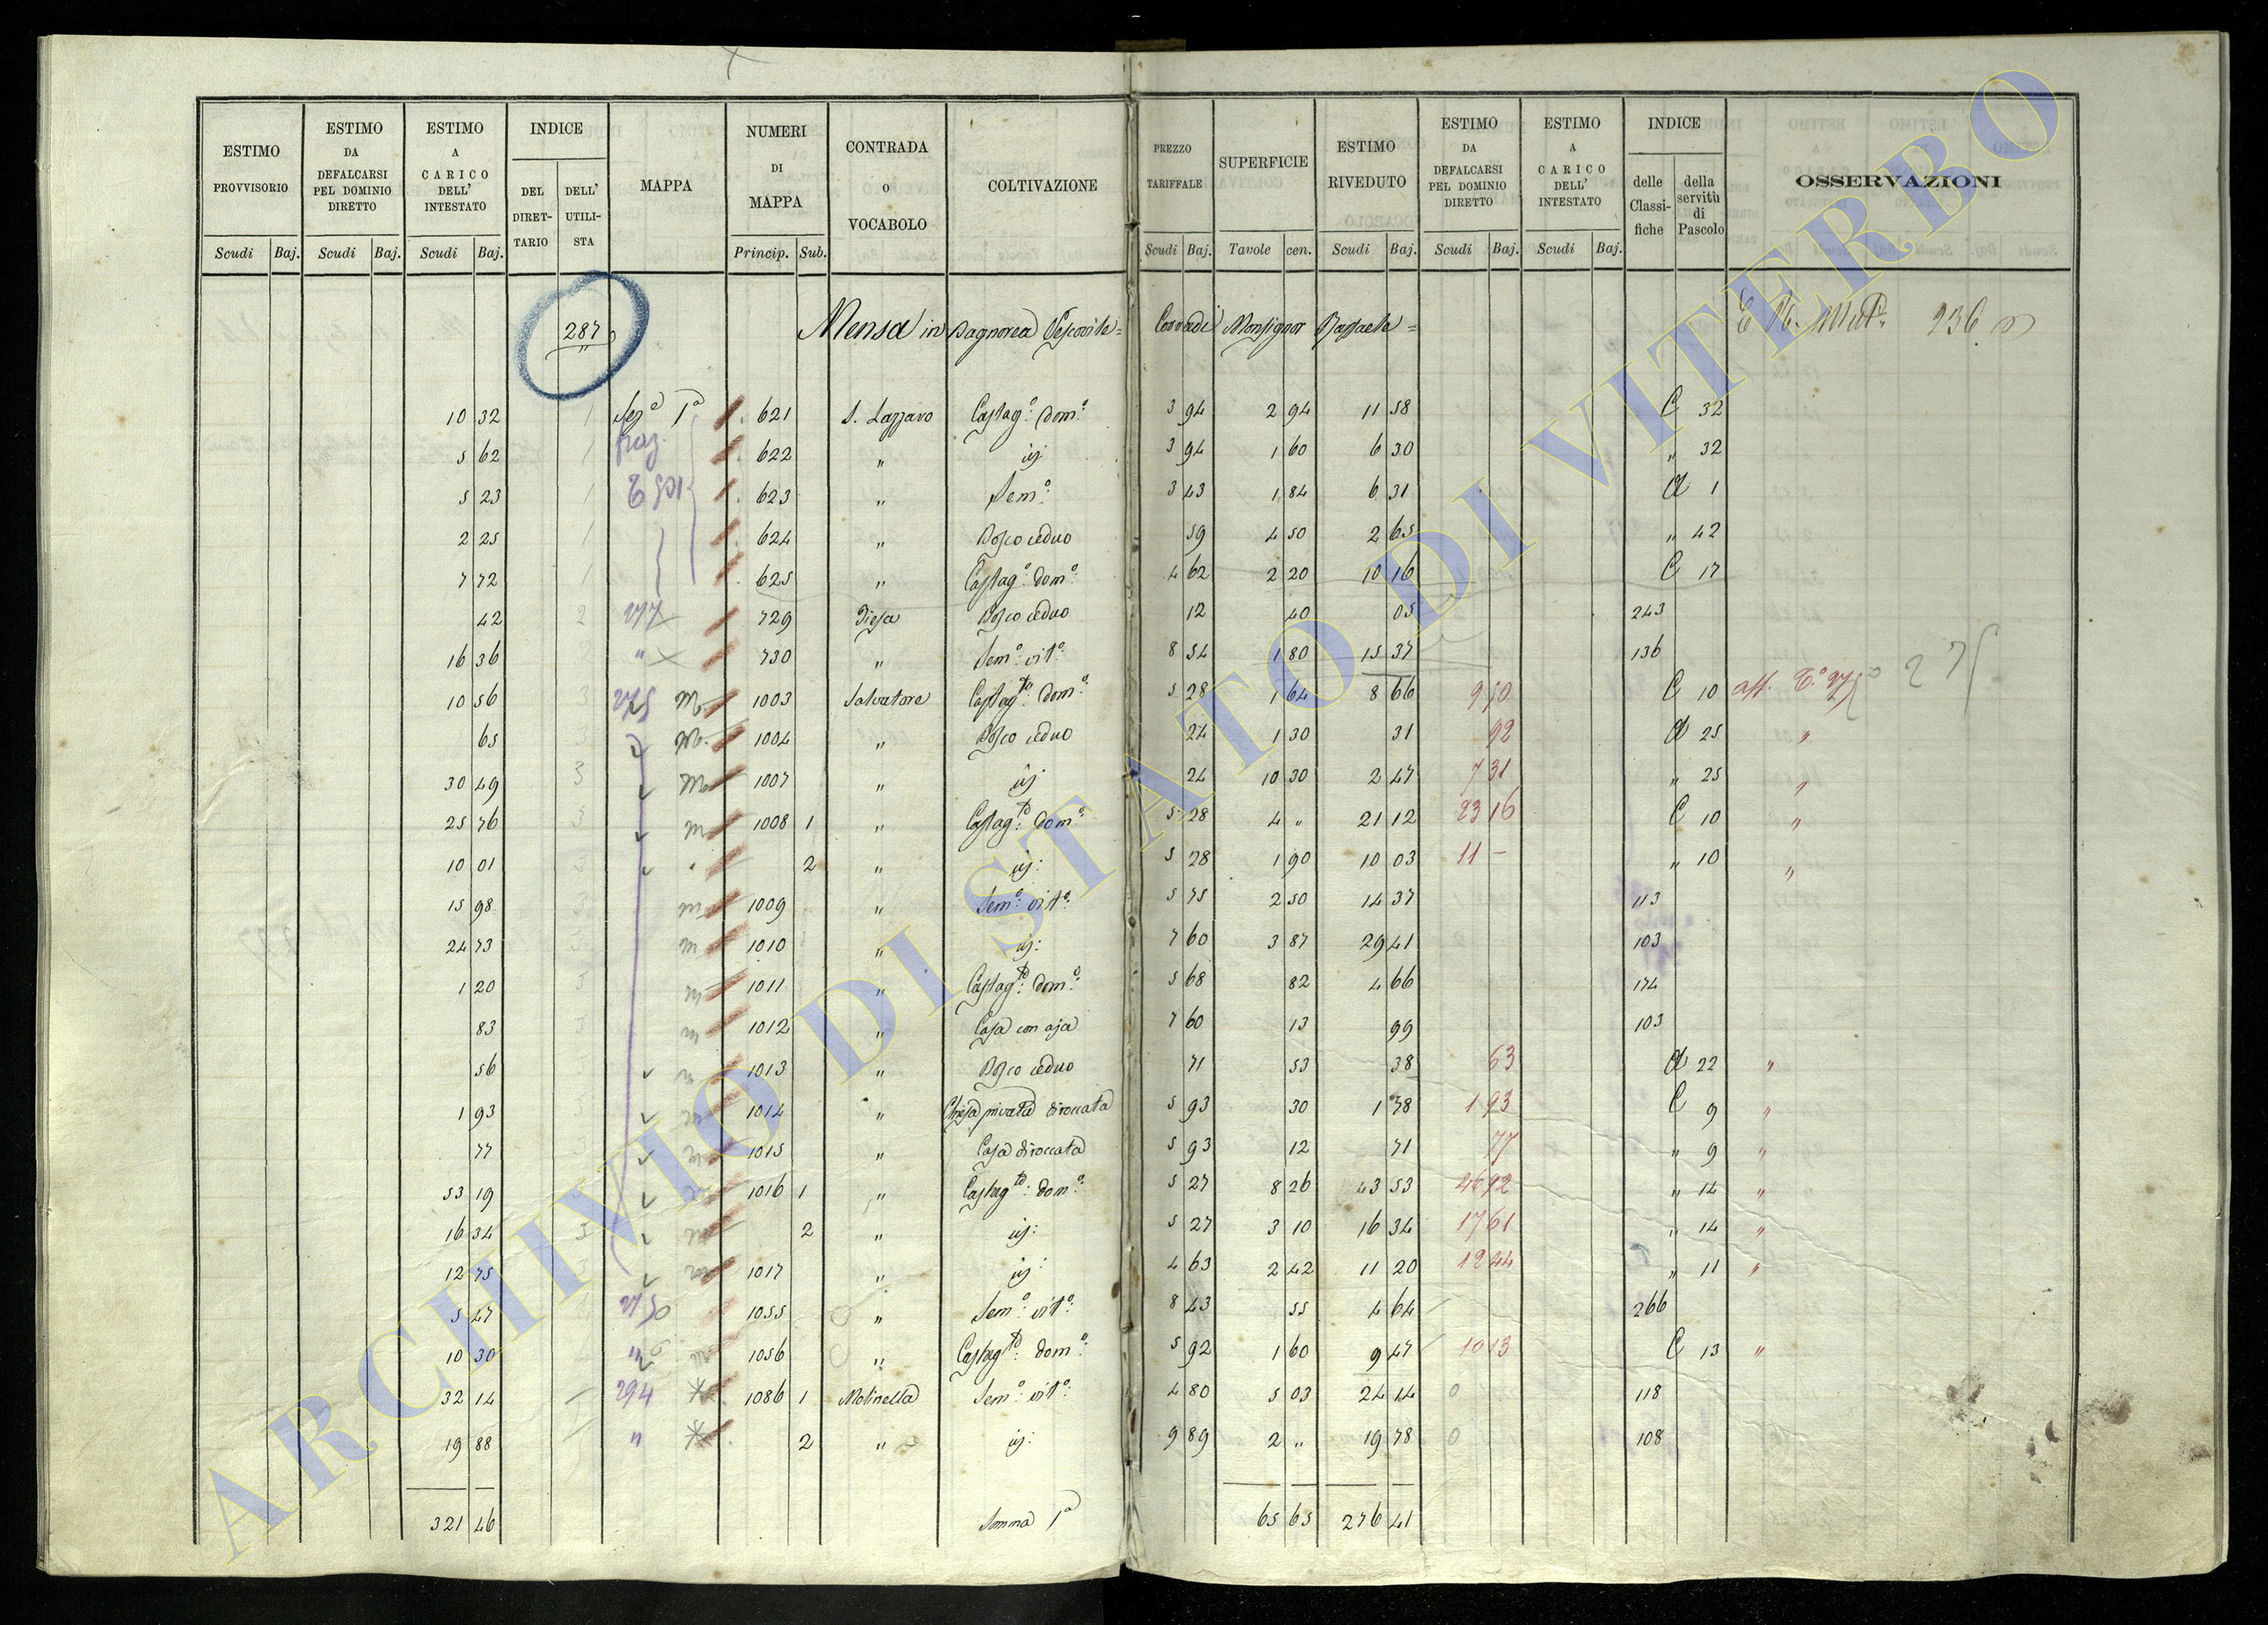 ESTIMO PROVVISORIO Scudi Baj.
ESTIMO DA DEFALCARSI PEL DOMINIO DIRETTO Scudi Baj.
ESTIMO A CARICO DELL' INTESTATO Scudi Baj.
INDICE DEL DIRETTARIO DELL' UTILISTA
MAPPA
NUMERI DI MAPPA Princip. Sub.
CONTRADA o VOCABOLO
COLTIVAZIONE
PREZZO TARIFFALE Scudi Baj.
SUPERFICIE Tavole cen.
ESTIMO RIVEDUTO Scudi Baj.
ESTIMO DA DEFALCARSI PEL DOMINIO DIRETTO Scudi Baj.
ESTIMO A CARICO DELL' INTESTATO Scudi Baj.
INDICE delle Classifiche della servitù di Pascolo
OSSERVAZIONI
287 Mensa in Bagnorea Vescovile = Corradi Monsignor Raffaele = 236
10 32 1 Sez.e 1a 621 S. Lazzaro Castag.o dom.o 3 94 2 94 11 58 C 32
5 62 1 622 " id: 3 94 1 60 6 30 " 32
5 23 1 623 " Sem.o 3 43 1 84 6 31 A 1
2 25 1 624 " Bosco ceduo 59 4 50 2 65 " 42
7 72 1 625 " Castag.o dom.o 4 62 2 20 10 16 C 17
42 2 729 Piesa Bosco ceduo 12 40 05 243
16 36 " 730 " Sem.o vit.o 8 54 1 80 15 37 136
10 56 3 275 1003 Salvatore Castag.to dom.o 5 28 1 64 8 66 9 50 C 10
65 3 1004 " Bosco ceduo 24 1 30 31 92 A 25 "
30 49 3 1007 " id: 24 10 30 2 47 7 31 " 25 "
25 76 3 1008 1 " Castag.to dom.o 5 28 4 " 21 12 23 16 C 10 "
10 01 3 2 " id: 5 28 1 90 10 03 11 – " 10 "
15 98 3 1009 " Sem.o vit.o 5 75 2 50 14 37 113
24 73 3 1010 " id: 7 60 3 87 29 41 103
1 20 3 1011 " Castag.to dom.o 5 68 82 4 66 174
83 3 1012 " Casa con aja 7 60 13 99 103
56 3 1013 " Bosco ceduo 71 53 38 63 A 22 "
1 93 3 1014 " Chiesa privata diroccata 5 93 30 1 78 1 93 C 9 "
77 3 1015 " Casa diroccata 5 93 12 71 77 " 9 "
53 19 3 1016 1 " Castag.to dom.o 5 27 8 26 43 53 46 92 " 14 "
16 34 3 2 " id: 5 27 3 10 16 34 17 61 " 14 "
12 75 3 1017 " id: 4 63 2 42 11 20 12 44 " 11 "
5 47 1055 " Sem.o vit.o 8 43 55 4 64 266
10 30 1056 " Castag.to dom.o 5 92 1 60 9 47 10 13 C 13 "
32 14 294 1086 1 Molinella Sem.o vit.o 4 80 5 03 24 14 0 118
19 88 " 2 " id: 9 89 2 " 19 78 0 108
321 46 Somma 1a 65 65 276 41
ARCHIVIO DI STATO DI VITERBO